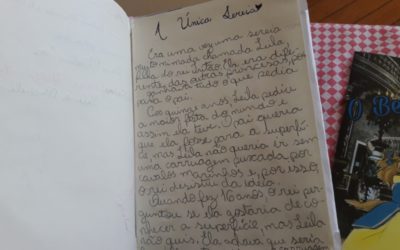 A Única Sereia♥
Era uma vez uma sereia
muito mimada chamada Leila,
filha do rei Tritão. Ela era dife-
rente das outras princesas, pois
ganhava tudo o que pedia
para o pai.
Aos quinze anos Leila pediu
a maior festa do mundo e
assim ela teve. O pai queria
que ela fosse para a superfí-
cie, mas Leila não queria ir sem
uma carruagem puxada por
cavalos marinhos e, por isso,
o rei desistiu da ideia.
Quando fez 16 anos o rei per-
guntou se ela gostaria de co-
nhecer a superfície, mas Leila
não quis. Ela achava que seria
O Be